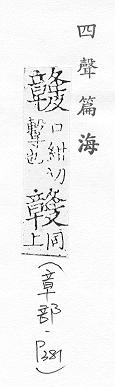 四聲篇海
口紺切
擊也
同
上
(章部.P381)